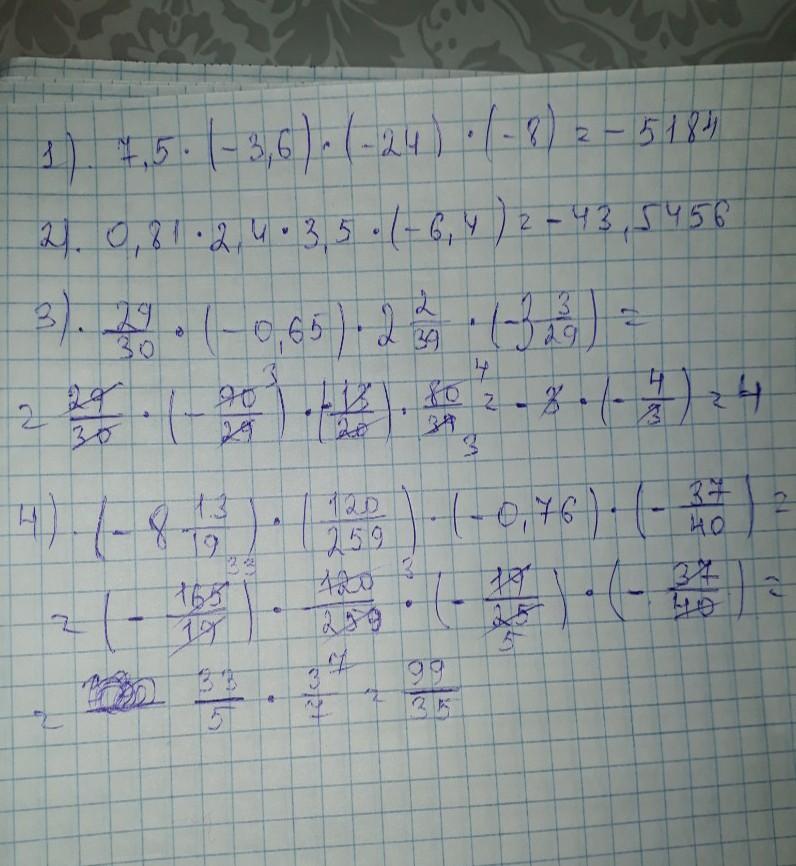 1). 7,5 · (-3,6) · (-24) · (-8) = - 5184
2). 0,81 · 2,4 · 3,5 · (-6,4) = - 43,5456
3). 29/30 · (-0,65) · 2 2/39 · (-3 3/29) =
= 29/30 · (- 90/29) 3 · (-13/20) · 80/39 4 3 = - 3 · (- 4/3) = 4
4) · (- 8 13/19) · (120/259) · (- 0,76) · (- 37/40) =
= (- 165/19) 33 · 120/259 3 · (- 19/25) 5 · (- 37/40) =
= 33/5 · 3/7 7 = 99/35